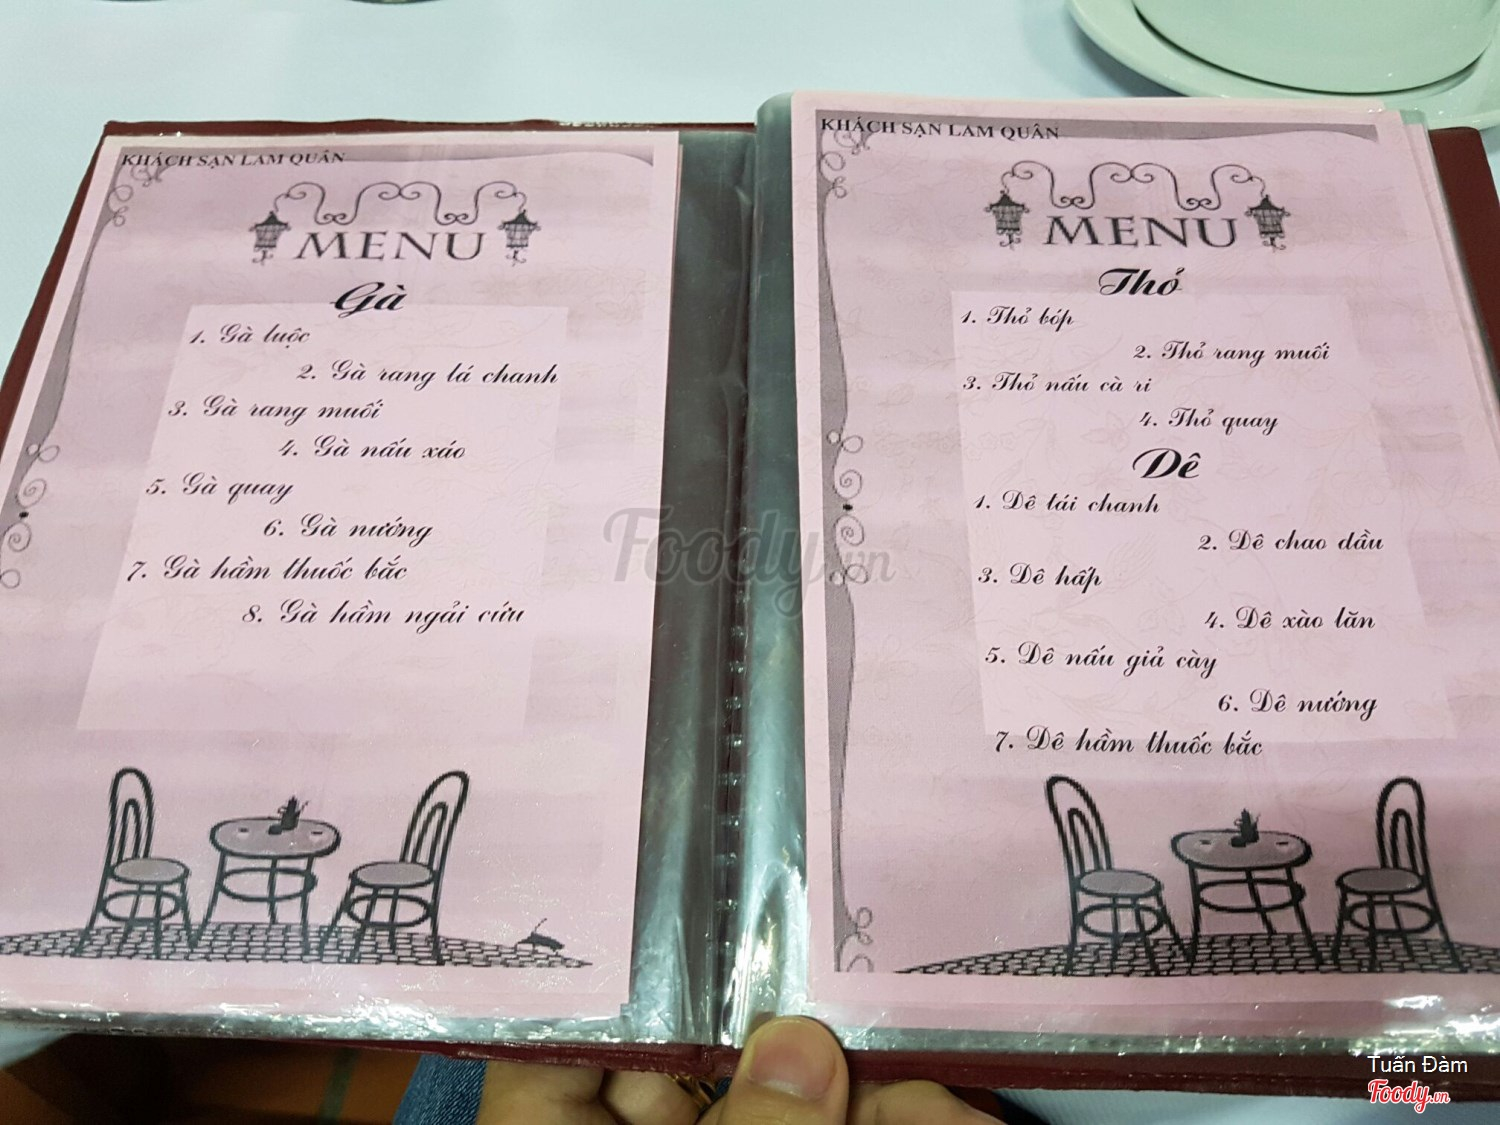 KHÁCH SẠN LAM QUÂN
MENU
Gà
1. Gà luộc
2. Gà rang lá chanh
3. Gà rang muối
4. Gà nấu xáo
5. Gà quay
6. Gà nướng
7. Gà hầm thuốc bắc
8. Gà hầm ngải cứu
KHÁCH SẠN LAM QUÂN
MENU
Thỏ
1. Thỏ bóp
2. Thỏ rang muối
3. Thỏ nấu cà ri
4. Thỏ quay
Dê
1. Dê tái chanh
2. Dê chao dầu
3. Dê hấp
4. Dê xào lăn
5. Dê nấu giả cày
6. Dê nướng
7. Dê hầm thuốc bắc
Foody.vn
Tuấn Đàm
Foody.vn